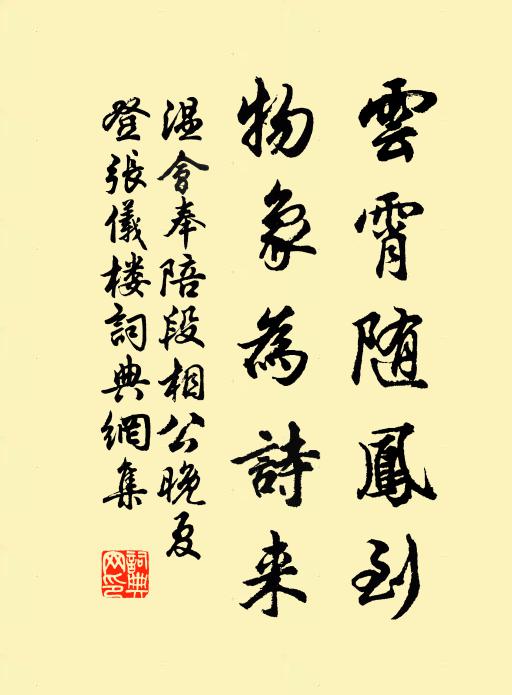 雲霄随鳳到
物象為詩来
温會奉陪段相公晚夏
登張儀楼詞典網集
詞典網印